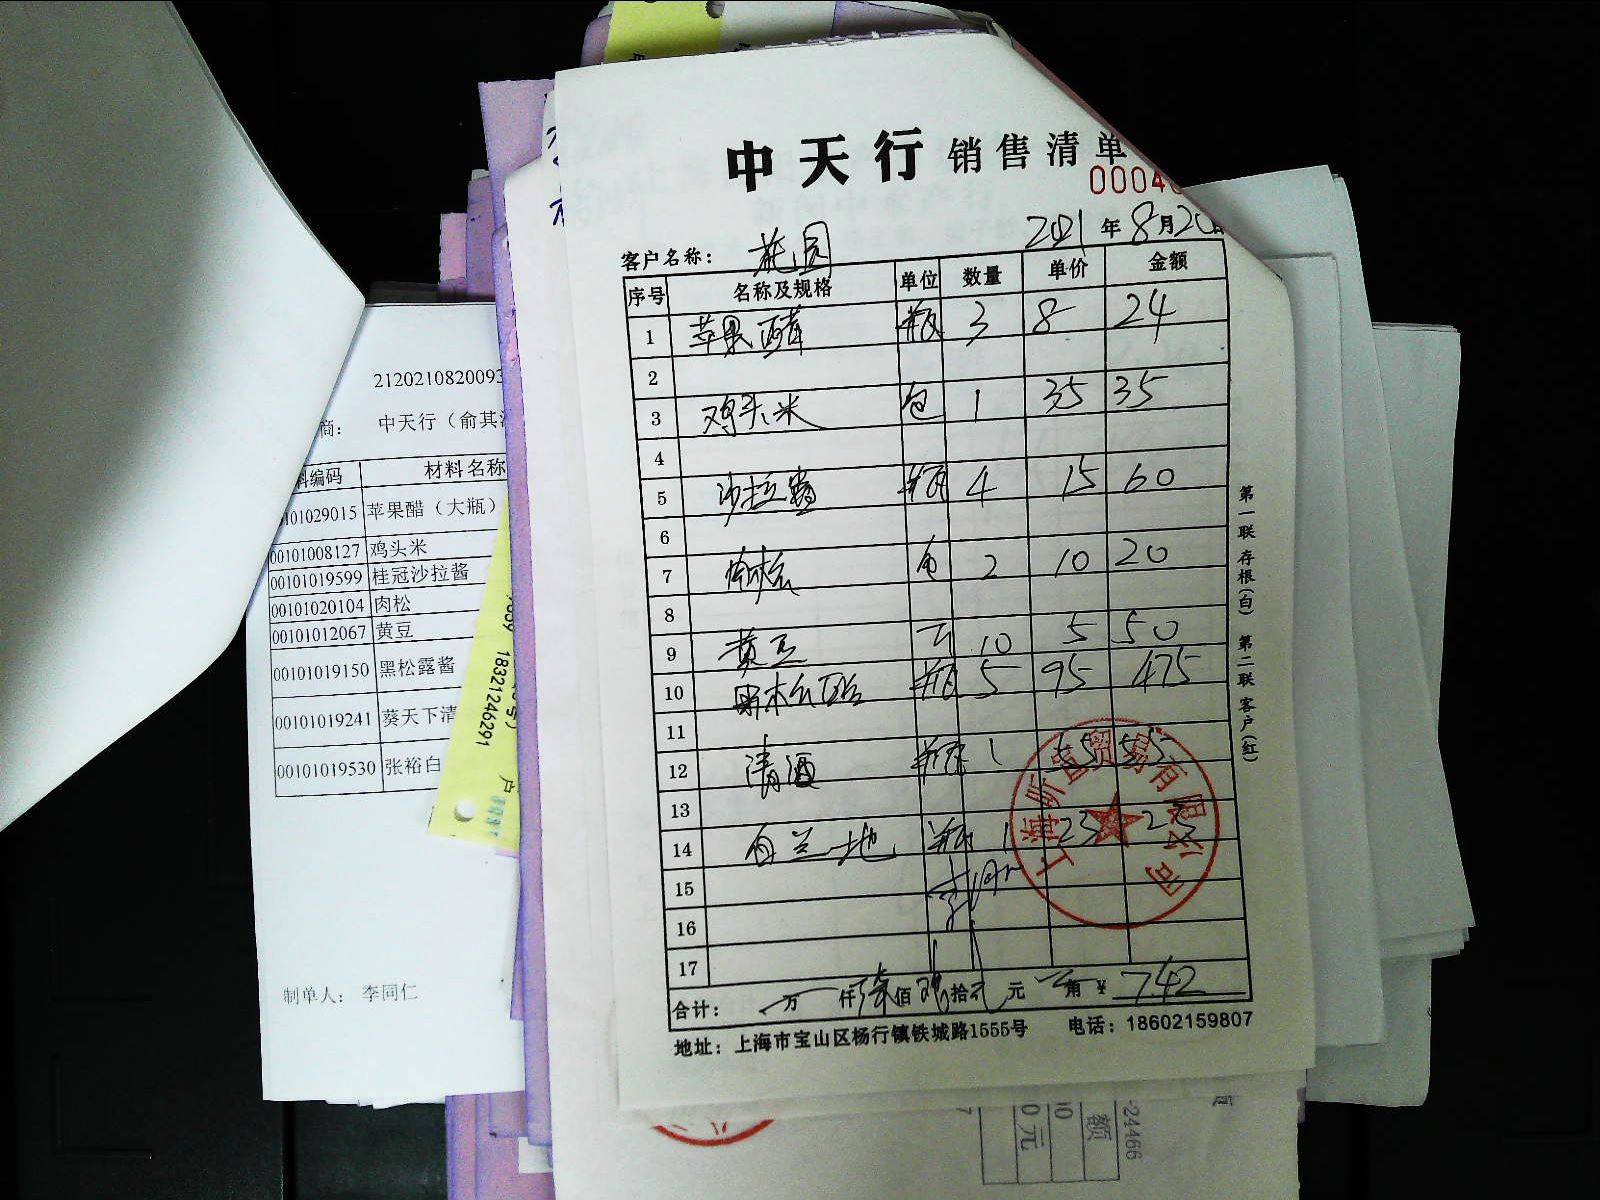 中天行 销售清单
0004
客户名称： 花园 2021 年 8 月 20
序号 名称及规格 单位 数量 单价 金额
1 苹果醋 瓶 3 8 24
2
3 鸡头米 包 1 35 35
4
5 沙拉酱 瓶 4 15 60
6
7 肉松 包 2 10 20
8
9 黄豆 斤 10 5 50
10 黑松露酱 瓶 5 95 475
11
12 清酒 瓶 1 55 55
13
14 白兰地 瓶 1 23 23
15
16
17
合计： 万 仟 柒 佰 肆 拾 贰 元 角 ¥ 742
地址：上海市宝山区杨行镇铁城路1555号 电话：18602159807
第一联 存根(白) 第二联 客户(红)
上海昕宜贸易有限公司
212021082009
商： 中天行（俞其
料编码 材料名称
0101029015 苹果醋（大瓶）
00101008127 鸡头米
00101019599 桂冠沙拉酱
00101020104 肉松
00101012067 黄豆
00101019150 黑松露酱
00101019241 葵天下清
00101019530 张裕白
制单人： 李同仁
18321246291
户
-24466
额
00
0元